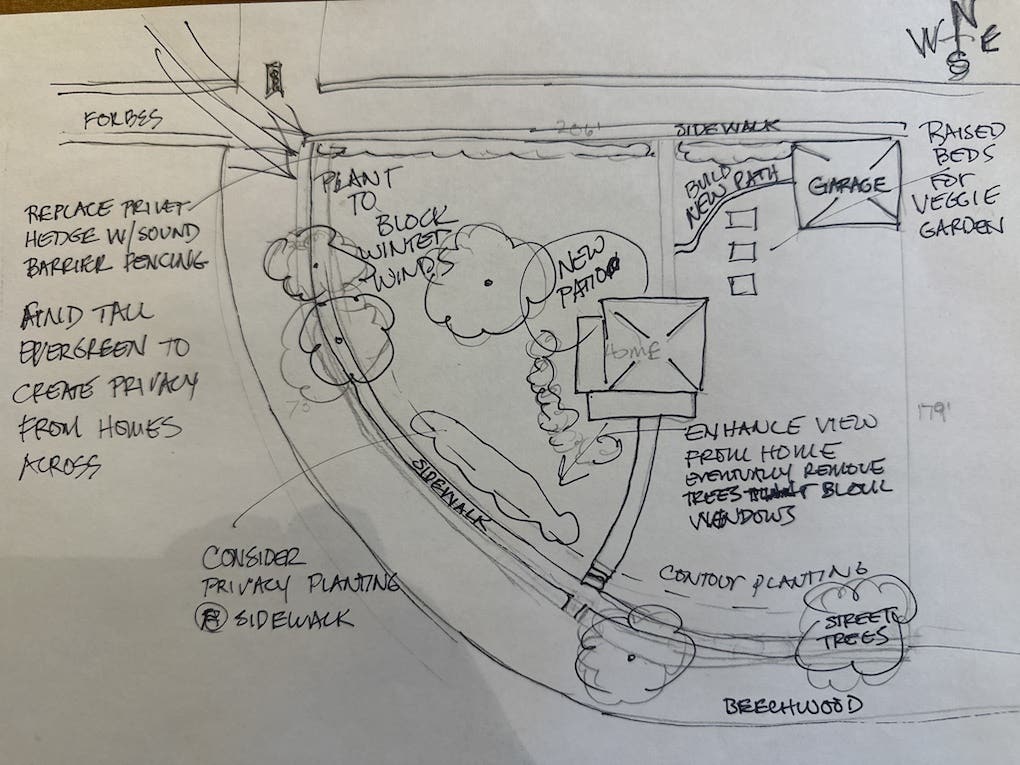 N
W E
S
FORBES
206'
SIDEWALK
RAISED
BEDS
FOR
VEGGIE
GARDEN
BUILD
NEW PATH
GARAGE
PLANT
TO
BLOCK
WINTER
WINDS
REPLACE PRIVET
HEDGE W/SOUND
BARRIER FENCING
FIND TALL
EVERGREEN TO
CREATE PRIVACY
FROM HOMES
ACROSS
NEW
PATIO
HOME
179'
ENHANCE VIEW
FROM HOME
EVENTUALLY REMOVE
TREES BLOCK
WINDOWS
SIDEWALK
CONSIDER
PRIVACY PLANTING
@ SIDEWALK
CONTOUR PLANTING
STREET
TREES
BEECHWOOD